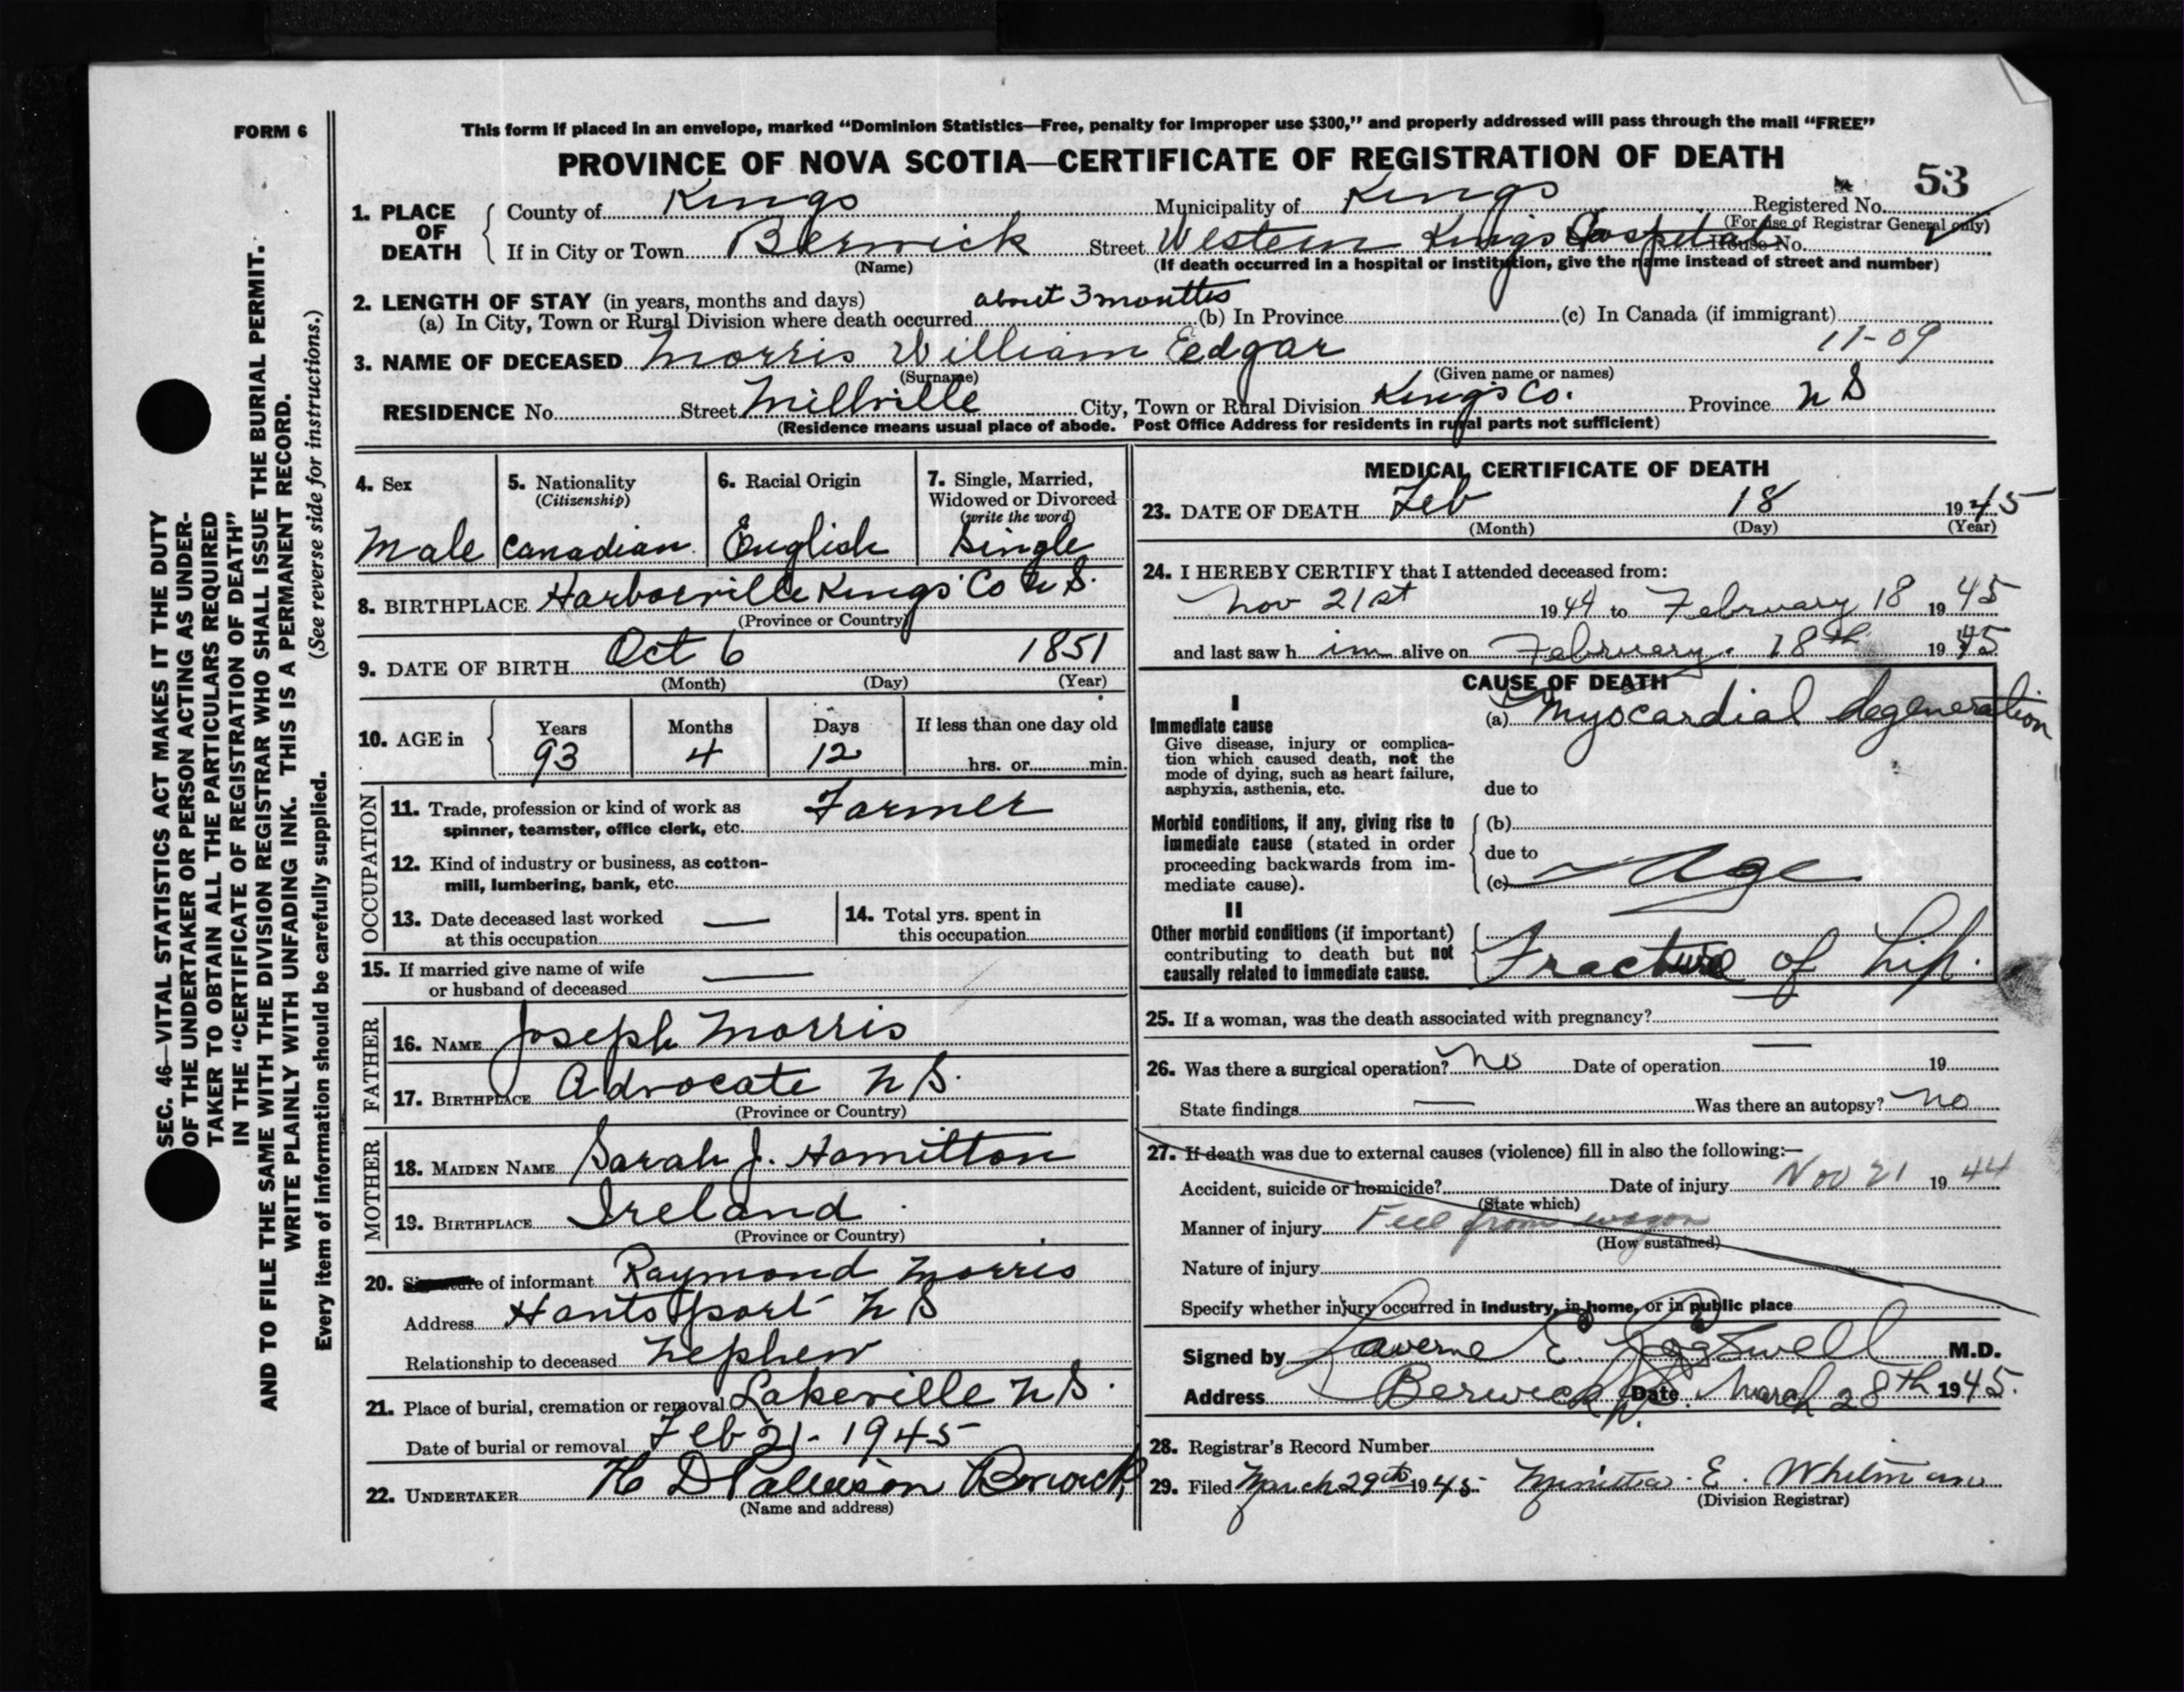 FORM 6
This form if placed in an envelope, marked "Dominion Statistics—Free, penalty for improper use $300," and properly addressed will pass through the mail "FREE"
PROVINCE OF NOVA SCOTIA—CERTIFICATE OF REGISTRATION OF DEATH
53
1. PLACE OF DEATH
County of Kings Municipality of Kings Registered No.
(For use of Registrar General only)
If in City or Town Berwick Street Western Kings Hospital House No.
(Name) (If death occurred in a hospital or institution, give the name instead of street and number)
2. LENGTH OF STAY (in years, months and days) about 3 months
(a) In City, Town or Rural Division where death occurred (b) In Province (c) In Canada (if immigrant)
11-09
3. NAME OF DECEASED Morris William Eedgar
(Surname) (Given name or names)
RESIDENCE No. Street Millville City, Town or Rural Division Kings Co. Province N S
(Residence means usual place of abode. Post Office Address for residents in rural parts not sufficient)
4. Sex 5. Nationality (Citizenship) 6. Racial Origin 7. Single, Married, Widowed or Divorced (write the word)
Male Canadian English Single
8. BIRTHPLACE Harborville Kings Co N S.
(Province or Country)
9. DATE OF BIRTH Oct 6 1851
(Month) (Day) (Year)
10. AGE in Years Months Days If less than one day old
93 4 12 hrs. or min.
OCCUPATION
11. Trade, profession or kind of work as spinner, teamster, office clerk, etc. Farmer
12. Kind of industry or business, as cotton-mill, lumbering, bank, etc.
13. Date deceased last worked at this occupation —
14. Total yrs. spent in this occupation
15. If married give name of wife or husband of deceased —
FATHER
16. NAME Joseph Morris
17. BIRTHPLACE Advocate N S.
(Province or Country)
MOTHER
18. MAIDEN NAME Sarah J. Hamilton
19. BIRTHPLACE Ireland
(Province or Country)
20. Signature of informant Raymond Morris
Address Hantsport N S
Relationship to deceased Nephew
21. Place of burial, cremation or removal Lakeville N S.
Date of burial or removal Feb 21 - 1945
22. UNDERTAKER H D Berwick
(Name and address)
MEDICAL CERTIFICATE OF DEATH
23. DATE OF DEATH Feb 18 1945
(Month) (Day) (Year)
24. I HEREBY CERTIFY that I attended deceased from:
Nov 21st 1944 to February 18 1945
and last saw him alive on February 18th 1945
CAUSE OF DEATH
I
Immediate cause
Give disease, injury or complication which caused death, not the mode of dying, such as heart failure, asphyxia, asthenia, etc.
(a) Myocardial degeneration
due to
Morbid conditions, if any, giving rise to immediate cause (stated in order proceeding backwards from immediate cause).
(b)
due to
(c) Age
II
Other morbid conditions (if important) contributing to death but not causally related to immediate cause.
Fracture of hip.
25. If a woman, was the death associated with pregnancy?
26. Was there a surgical operation? No Date of operation — 19
State findings — Was there an autopsy? No
27. If death was due to external causes (violence) fill in also the following:—
Accident, suicide or homicide? Date of injury Nov 21 1944
(State which)
Manner of injury Fell from wagon
(How sustained)
Nature of injury
Specify whether injury occurred in industry, in home, or in public place
Signed by Laverne E. Coggswell M.D.
Address Berwick Date March 28th 1945.
28. Registrar's Record Number
29. Filed March 29th 1945 E. Whitman
(Division Registrar)
SEC. 46—VITAL STATISTICS ACT MAKES IT THE DUTY
OF THE UNDERTAKER OR PERSON ACTING AS UNDER-
TAKER TO OBTAIN ALL THE PARTICULARS REQUIRED
IN THE "CERTIFICATE OF REGISTRATION OF DEATH"
AND TO FILE THE SAME WITH THE DIVISION REGISTRAR WHO SHALL ISSUE THE BURIAL PERMIT.
WRITE PLAINLY WITH UNFADING INK. THIS IS A PERMANENT RECORD.
Every item of information should be carefully supplied. (See reverse side for instructions.)